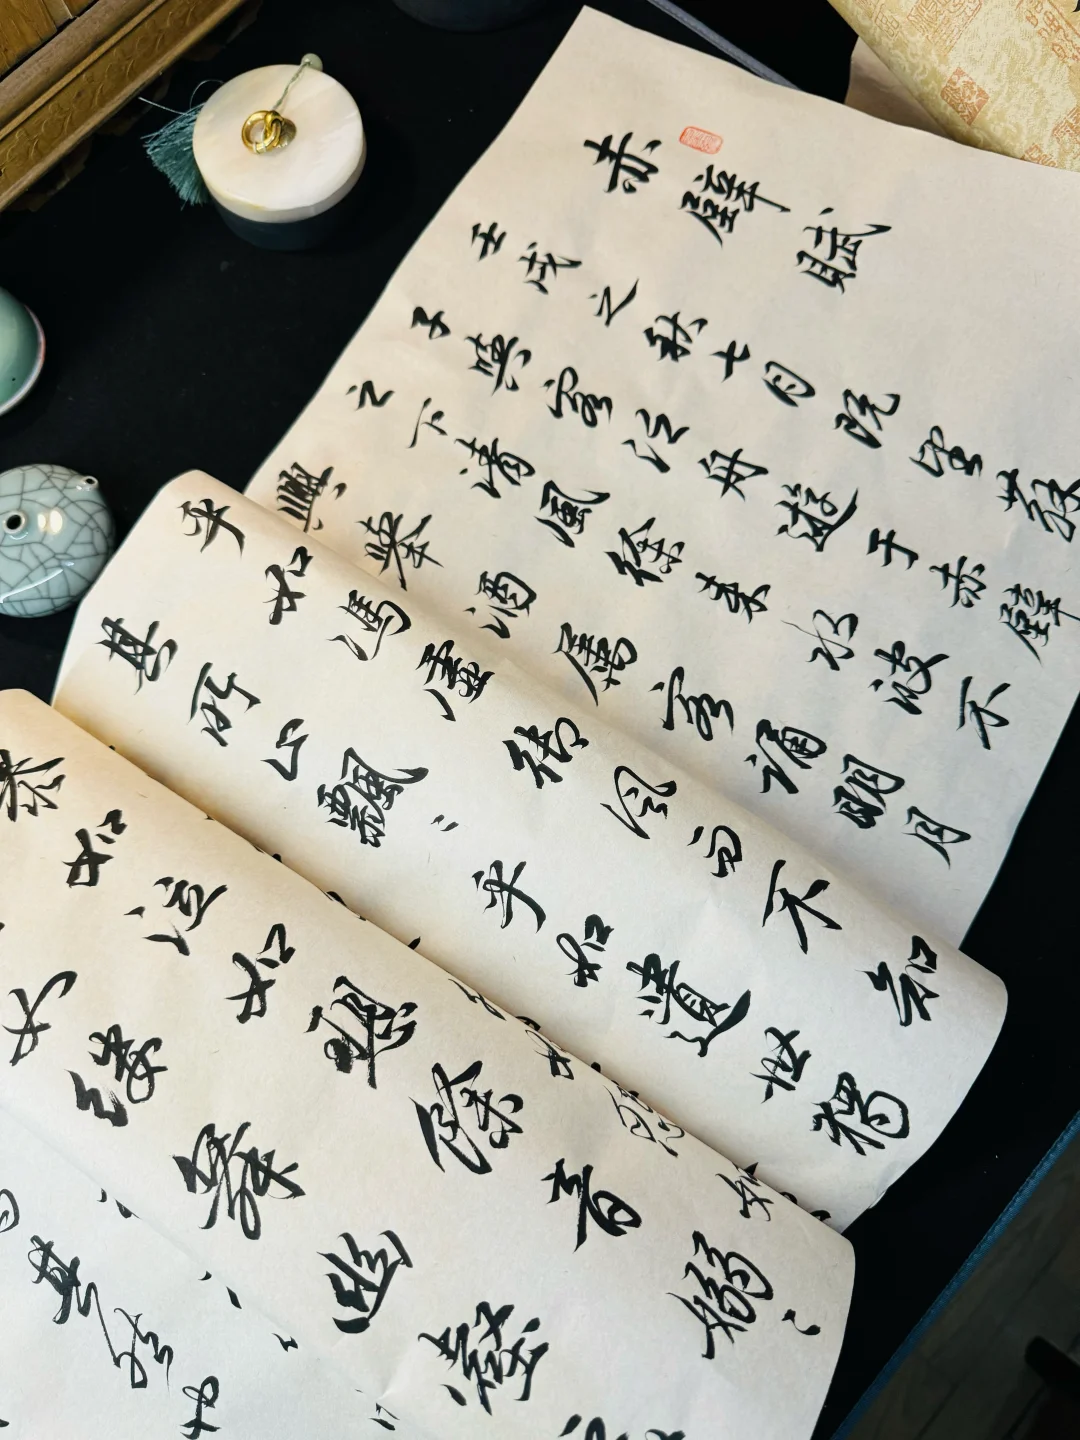 赤壁賦
壬戌之秋七月既望蘇
子與客泛舟遊于赤壁
之下清風徐來水波不
興舉酒屬客誦明月
乎如馮虛御風而不知
其所止飄〻乎如遺世獨
慕如泣如愬餘音嫋〻
如縷舞幽壑
其然也